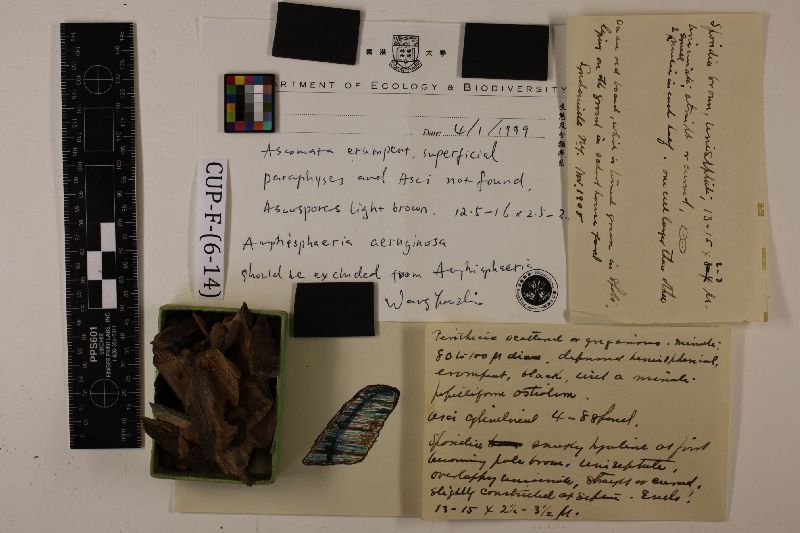 香港大學
DEPARTMENT OF ECOLOGY & BIODIVERSITY
生態及分類學系
Date 4/1/1999
Ascomata erumpent, superficial
paraphyses and Asci not found.
Ascospores light brown. 12.5-16 x 2.5-
Amphisphaeria aeruginosa
should be excluded from Amphisphaeria
Wang Yuzhi
CUP-F-(6-14)
PPS601
SIRCHIE
FINGER PRINT LABS, INC
1-800-356-7311
mm
Sporidia brown, uniseptate, 13-15 x 2-3 µ.
uniseriate, straight or curved,
2 guttulae in each half. one cell longer than other
On an old board, which is turned green in spots.
lying on the ground in school house yard
Lyndonville N.Y. Nov. 1908
Perithecia scattered or gregarious. minute
80-100 µ diam, depressed hemispherical,
erumpent, black, with a minute
papilliform ostiolum.
Asci cylindrical 4-8 spored.
Sporidia smoky hyaline at first
becoming pale brown, uniseptate,
overlapping uniseriate, straight or curved,
slightly constricted at septum. Ends!
13-15 x 2½-3½ µ.